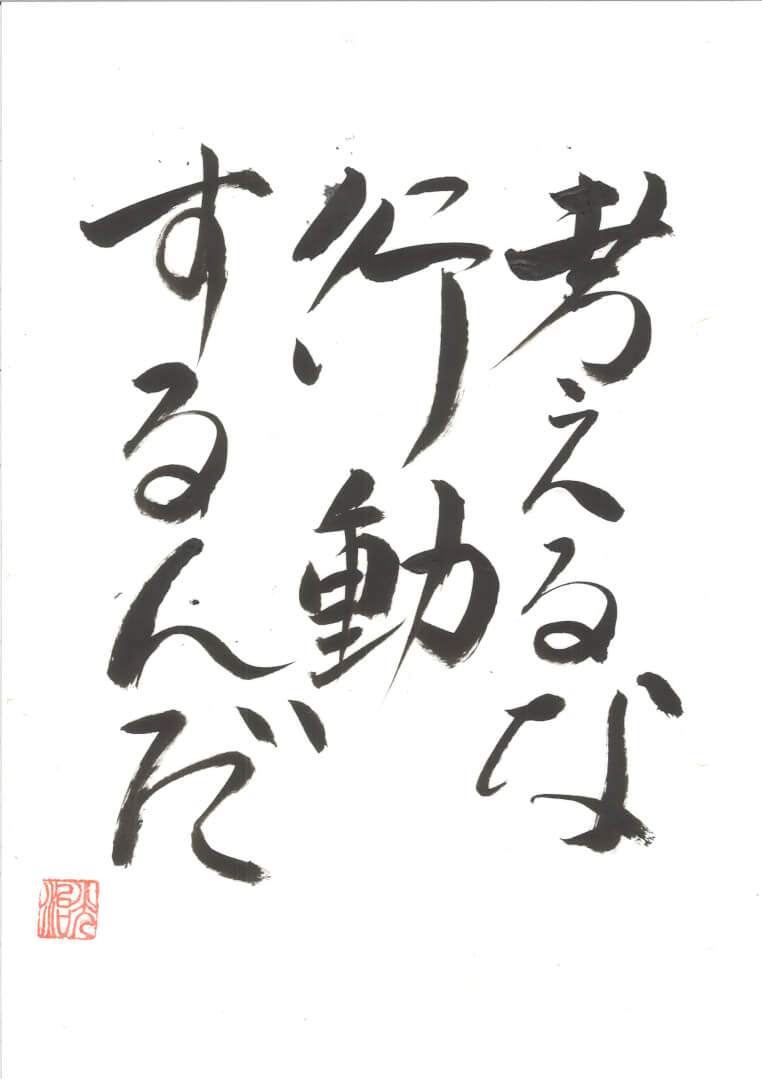 考えるな
行動
するんだ